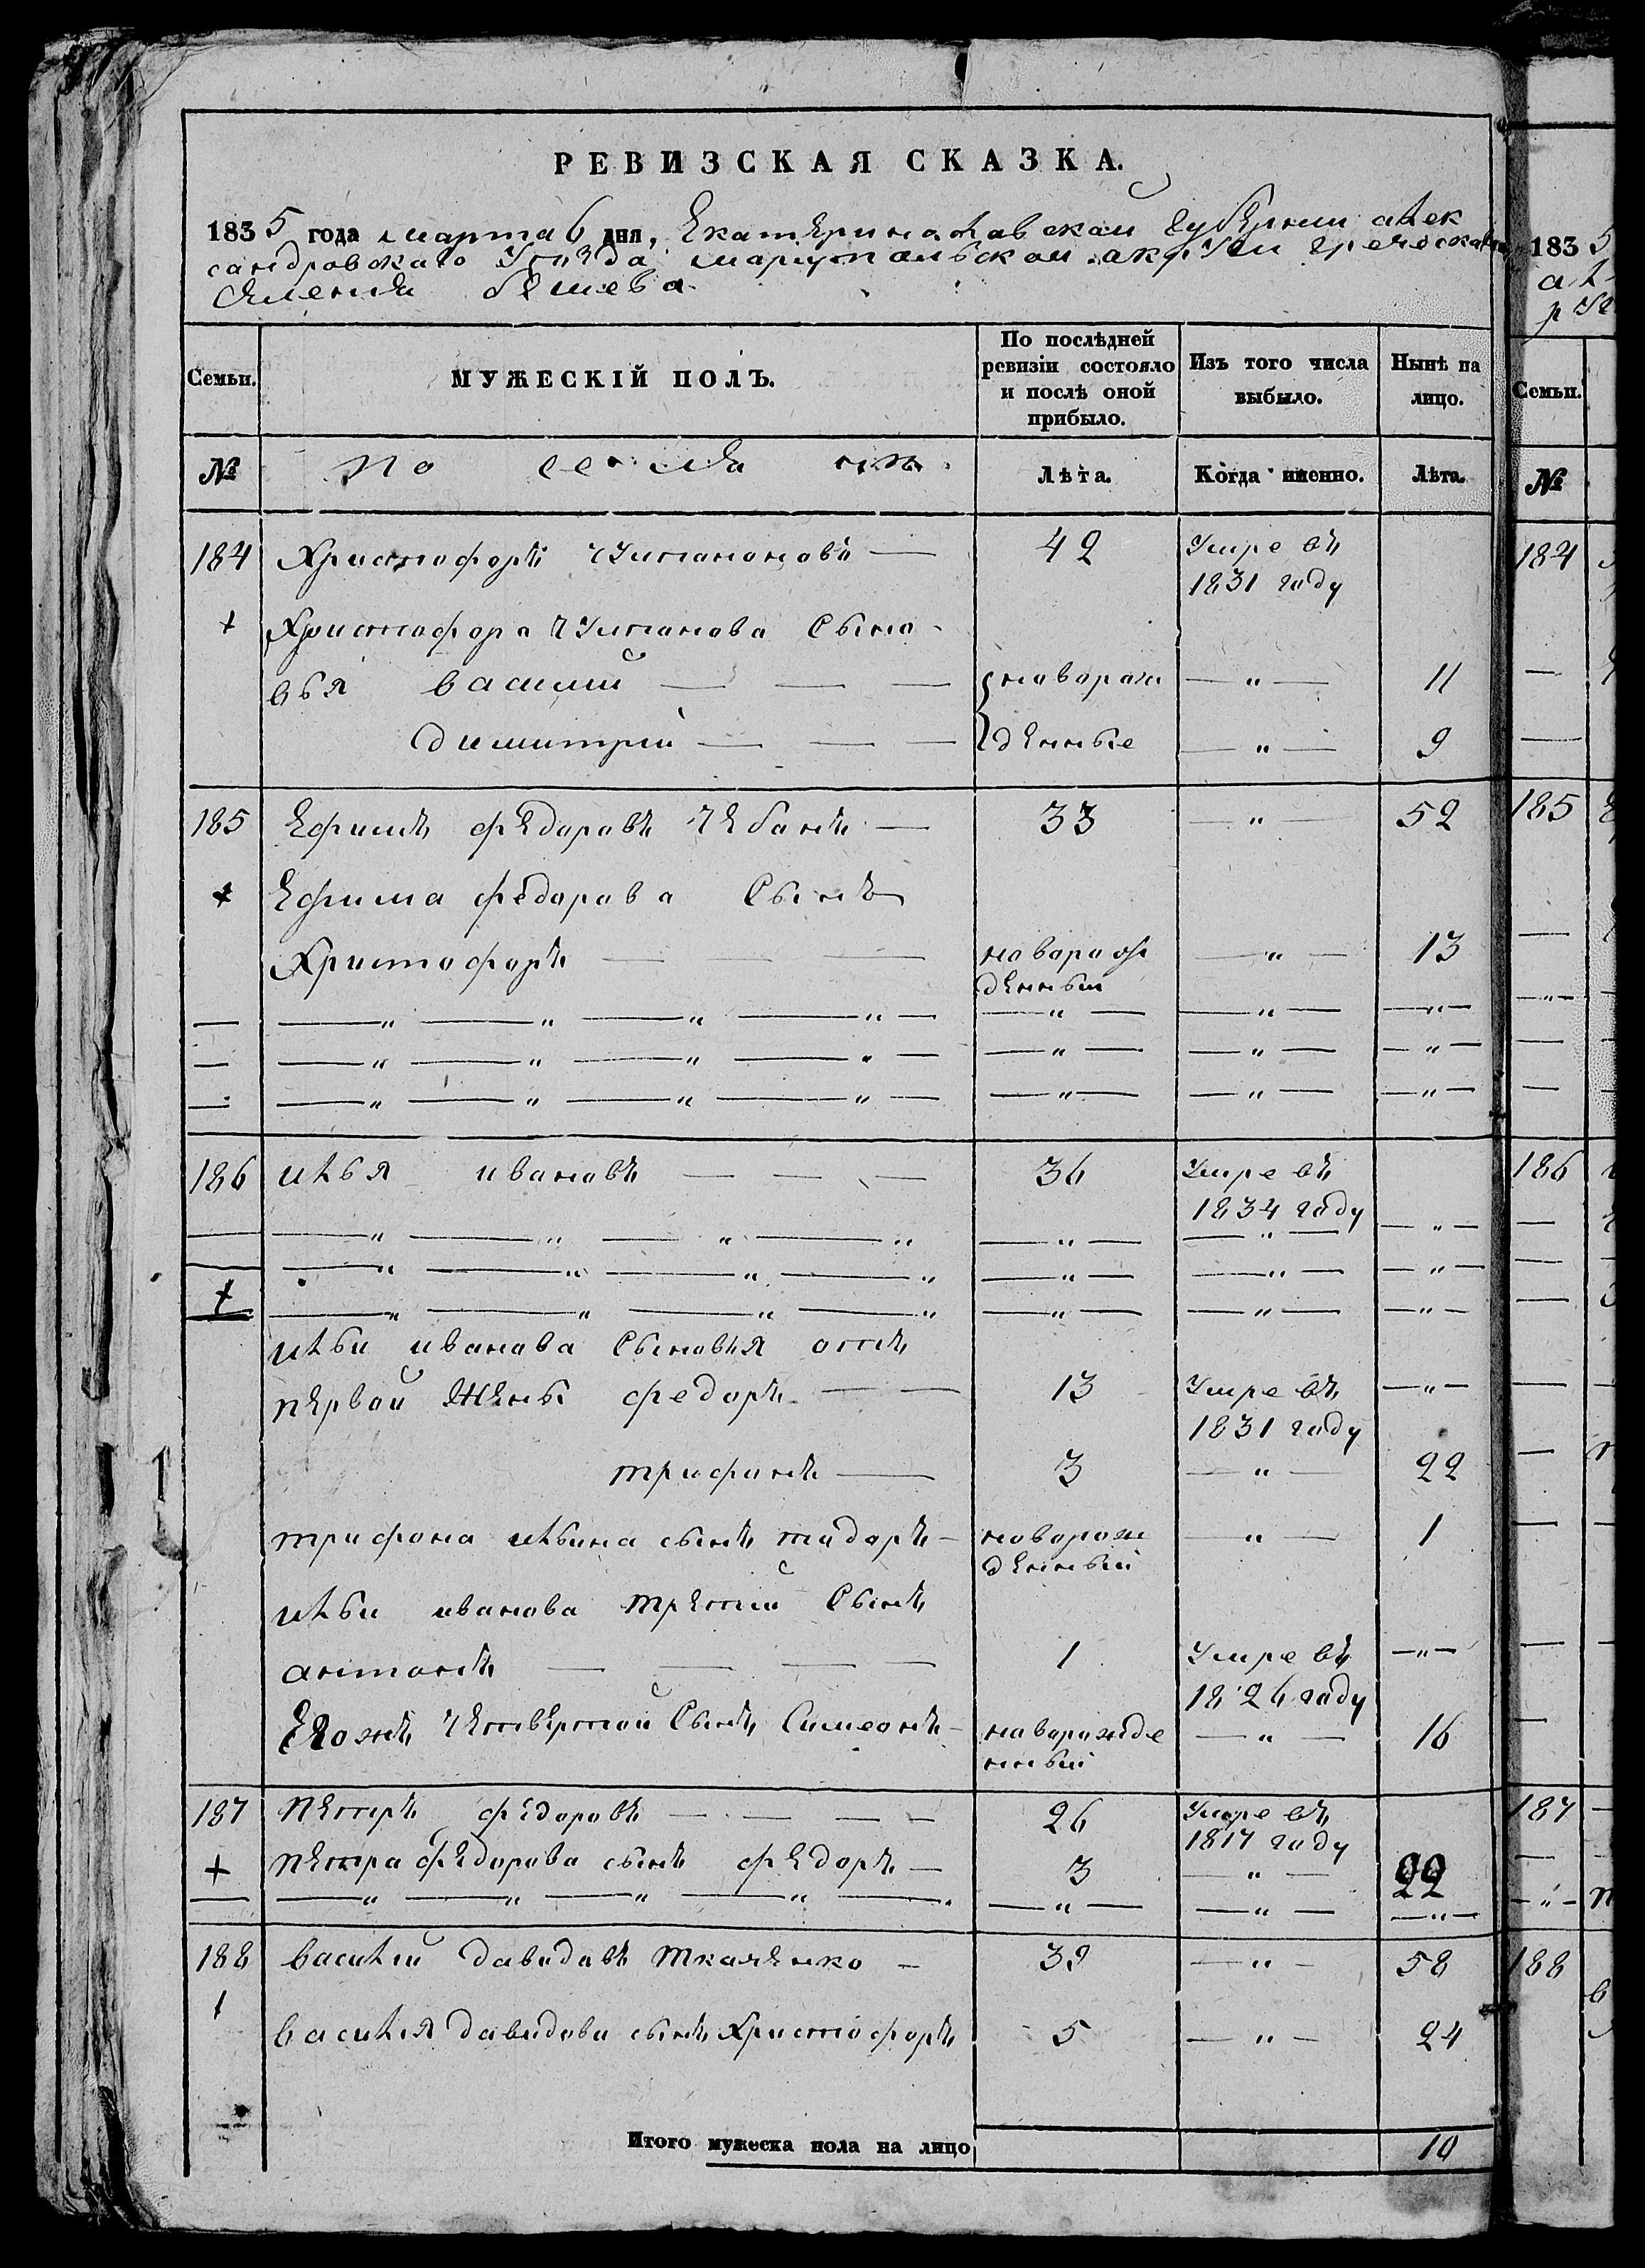 РЕВИЗСКАЯ СКАЗКА.
1835 года марта 6 дня, Екатеринославской губернии алек
сандровскаго Уѣзда мариупольскои округи греческаго
Селения бешева
Семьи. МУЖЕСКІЙ ПОЛЪ. По послѣдней ревизіи состояло и послѣ оной прибыло. Изъ того числа выбыло. Нынѣ на лицо.
№ По Лѣта. Когда именно. Лѣта.
184 Христофоръ 42 Умре въ
1831 году
+ Христофора Сыно
вья василий новорож — " — 11
димитрий денные — " — 9
185 Ефимъ федоровъ Чебанъ 33 — " — 52
+ Ефима федорова Сынъ
Христофоръ новорож — " — 13
денный
— — " — " — " — " — — " — — " — — " —
— — " — " — " — " — — " — — " — — " —
— — " — " — " — " — — " — — " — — " —
186 илья ивановъ 36 Умре въ
1834 году
— — " — " — " — " — " — — " — — " —
— — " — " — " — " — " — — " — — " —
+ — " — " — " — " — " — — " — — " —
ильи иванова Сыновья отъ
первой жены федоръ 13 Умре въ — " —
1831 году
трифонъ 3 — " — 22
трифона ильина сынъ тидоръ новорож — " — 1
денный
ильи иванова третий Сынъ
антонъ 1 Умре въ — " —
1826 году
Егожъ четвертой Сынъ Симеонъ новорожде — " — 16
нный
187 петръ федоровъ 26 Умре въ
1817 году
+ петра федорова сынъ федоръ 3 — " — 22
— — " — " — " — " — " — " — — " — — " —
188 василий давидовъ ткаченко 39 — " — 58
василия давидова сынъ Христофоръ 5 — " — 24
Итого мужеска пола на лицо 10
183 5
Семьи.
№
184
185
186
187
188